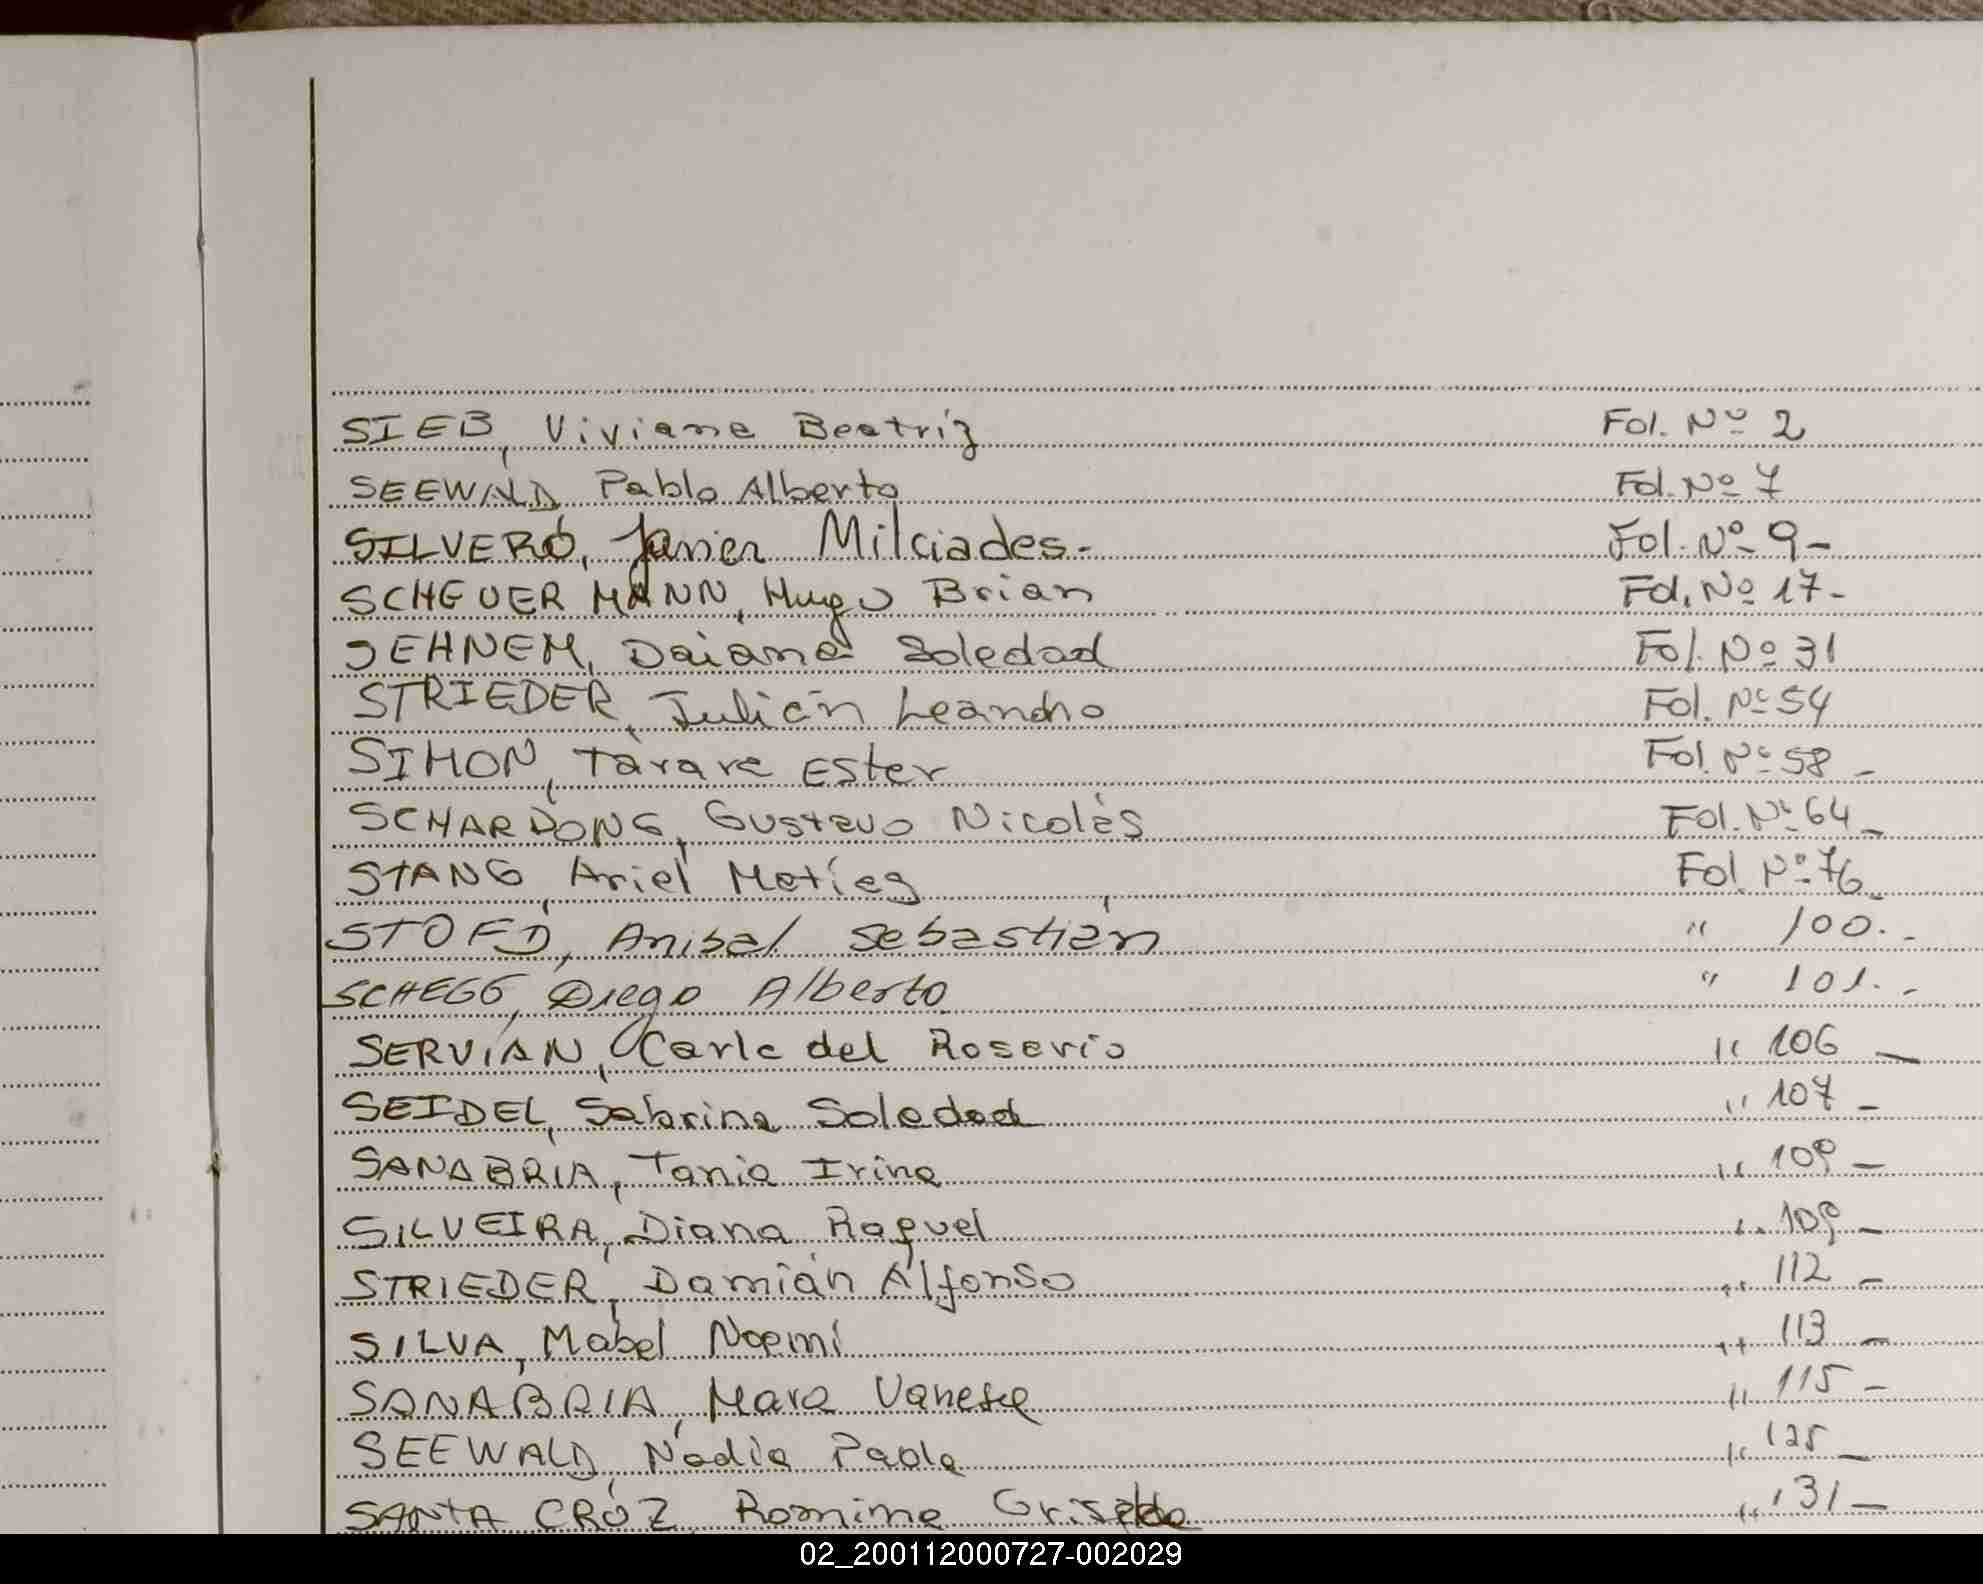 SIEB, Viviana Beatriz Fol. Nº 2
SEEWALD, Pablo Alberto Fol. Nº 7
SILVERO, Javier Milciades.- Fol. Nº 9-
SCHEUERMANN, Hugo Brian Fol. Nº 17-
SEHNEM, Daiana Soledad Fol. Nº 31
STRIEDER, Julián Leandro Fol. Nº 54
SIMON, Tárare Ester Fol. Nº 58 -
SCHARDONG, Gustavo Nicolás Fol. Nº 64 -
STANG, Ariel Matías Fol Nº 76 -
STOFD, Anibal Sebastián " 100.-
SCHEGG, Diego Alberto " 101.-
SERVIAN, Carla del Rosario " 106 -
SEIDEL, Sabrina Soledad " 107 -
SANABRIA, Tania Irina " 109 -
SILVEIRA, Diana Raquel " 109 -
STRIEDER, Damián Alfonso " 112 -
SILVA, Mabel Noemí " 113 -
SANABRIA, Mara Vanesa " 115 -
SEEWALD, Nadia Paola " 125 -
SANTA CRUZ, Romina Griselda " 131 -
02_200112000727-002029